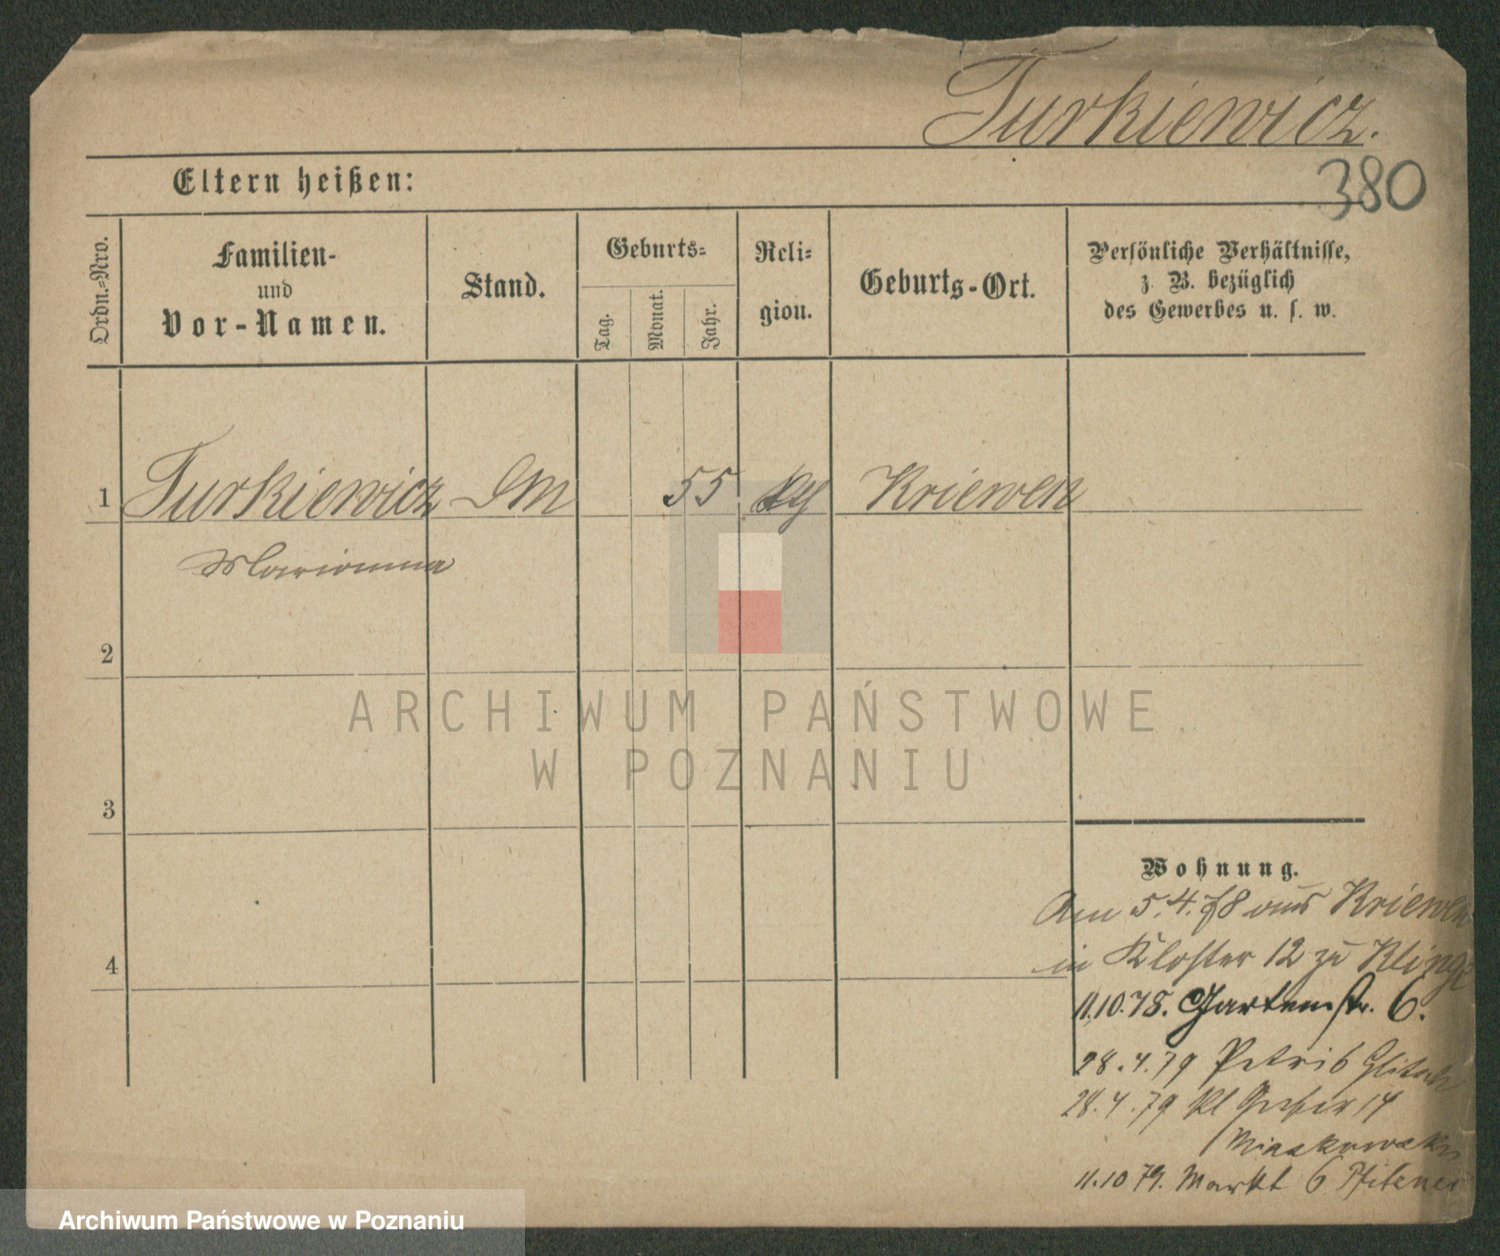 Turkiewicz.
380
Eltern heißen:
Ordn.-Nro.
Familien-
und
Vor-Namen.
Stand.
Geburts-
Tag.
Monat.
Jahr.
Reli-
gion.
Geburts-Ort.
Persönliche Verhältnisse,
z. B. bezüglich
des Gewerbes u. s. w.
1 Turkiewicz DM 55 Kriewen
Marianna
2
ARCHIWUM PAŃSTWOWE
W POZNANIU
3
Wohnung.
Am 5.4.78 aus Kriewen
4
in Kloster 12 zu
11.10.78. Gartenstr. 6.
28.4.79 Petri 6
28.4.79 Kl 14
11.10 79. Markt 6 Pfitzner
Archiwum Państwowe w Poznaniu